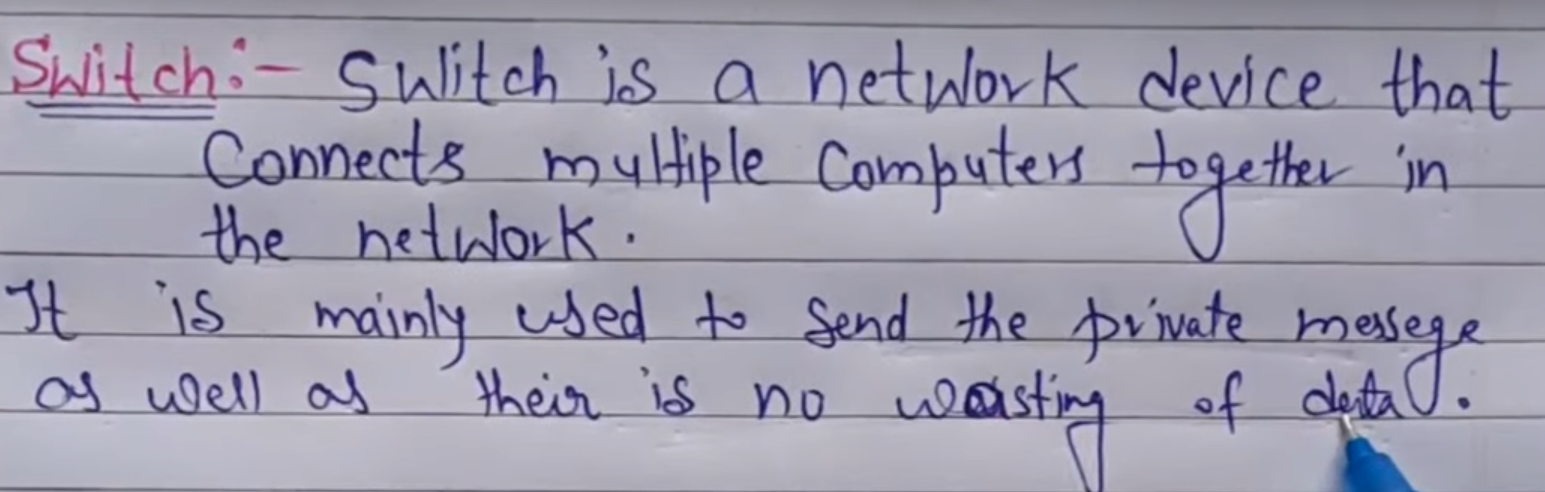 Switch:- Switch is a network device that
Connects multiple Computers together in
the network.
It is mainly used to send the private messege
as well as their is no wasting of data.